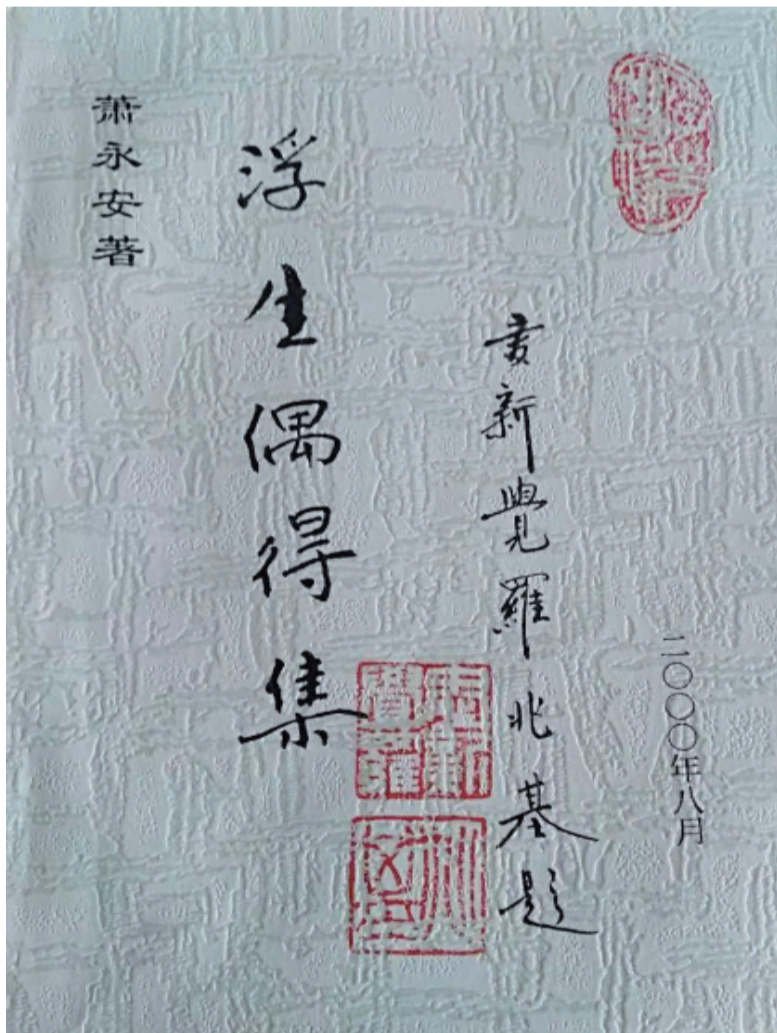 二〇〇〇年八月
愛新覺羅兆基題
浮生偶得集
萧永安著